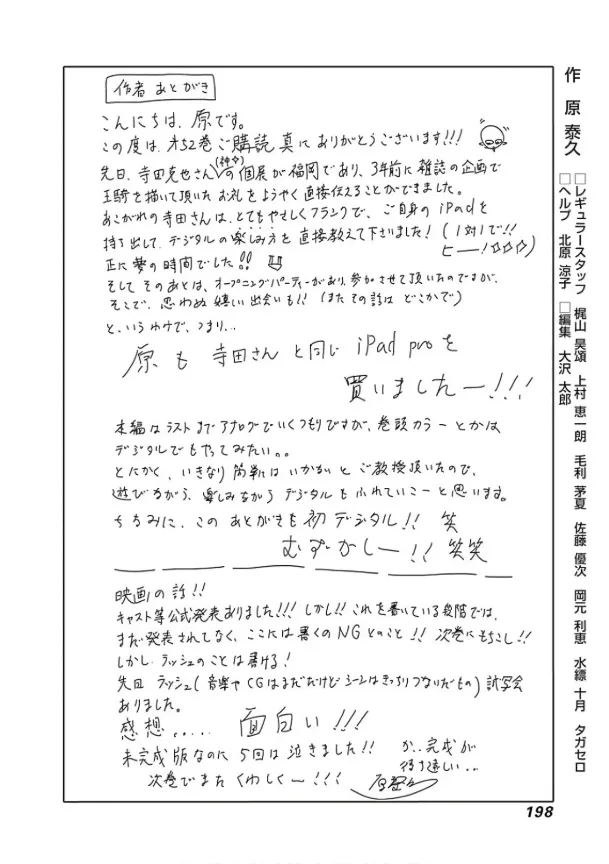 作者 あとがき
こんにちは、原です。
この度は、第52巻ご購読 真にありがとうございます!!!
先日、寺田克也さん(神☆)の個展が福岡であり、3年前に雑誌の企画で
王騎を描いて頂いたお礼をようやく直接伝えることができました。
あこがれの寺田さんは、とてもやさしくフランクで、ご自身の iPadを
持ち出して、デジタルの楽しみ方を直接教えて下さいました!(1対1で!!
ヒー―!☆☆☆)
正に夢の時間でした!!
そして そのあとは、オープニングパーティーがあり、参加させて頂いたのですが、
そこで、思わぬ嬉しい出会いも!!(またその話はどこかで)
というわけで、つまり…
原も 寺田さんと同じ iPad proを
買いましたー!!!
本編はラストまでアナログでいくつもりですが、巻頭カラーとかは
デジタルでもやってみたい。。
とにかく、いきなり簡単にはいかないとご教授頂いたので、
遊びながら、楽しみながらデジタルもふれていこーと思います。
ちなみに、このあとがきも初デジタル!! 笑
むずかしー!! 笑笑
映画の話!!
キャスト等公式発表ありました!!! しかし!! これを書いている段階では、
まだ発表されてなく、ここには書くのNGとのこと!! 次巻にもちこし!!
しかし、ラッシュのことは書ける!
先日 ラッシュ(音楽やCGはまだだけどシーンはきっちりつないだもの)試写会
ありました。
感想..... 面白い!!!
未完成版なのに5回は泣きました!! か、完成が
待ち遠しい…
次巻でまたくわしくー!!! 原泰久
作 原 泰久
□レギュラースタッフ 梶山 昊頌 上村 恵一朗 毛利 茅夏 佐藤 優次 岡元 利恵 水縹 十月 タガセロ
□ヘルプ 北原 涼子 □編集 大沢 太郎
198